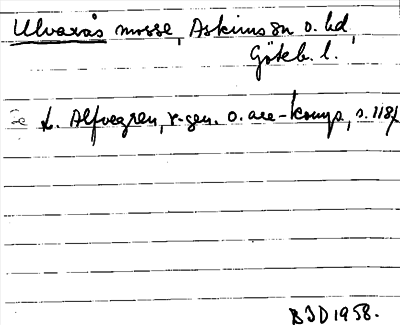 Ulvarås mosse, Askims sn o. hd,
Göteb. l.
L. Alfvegren, r-gen. o. are-komp, s. 118f
BJD 1958.